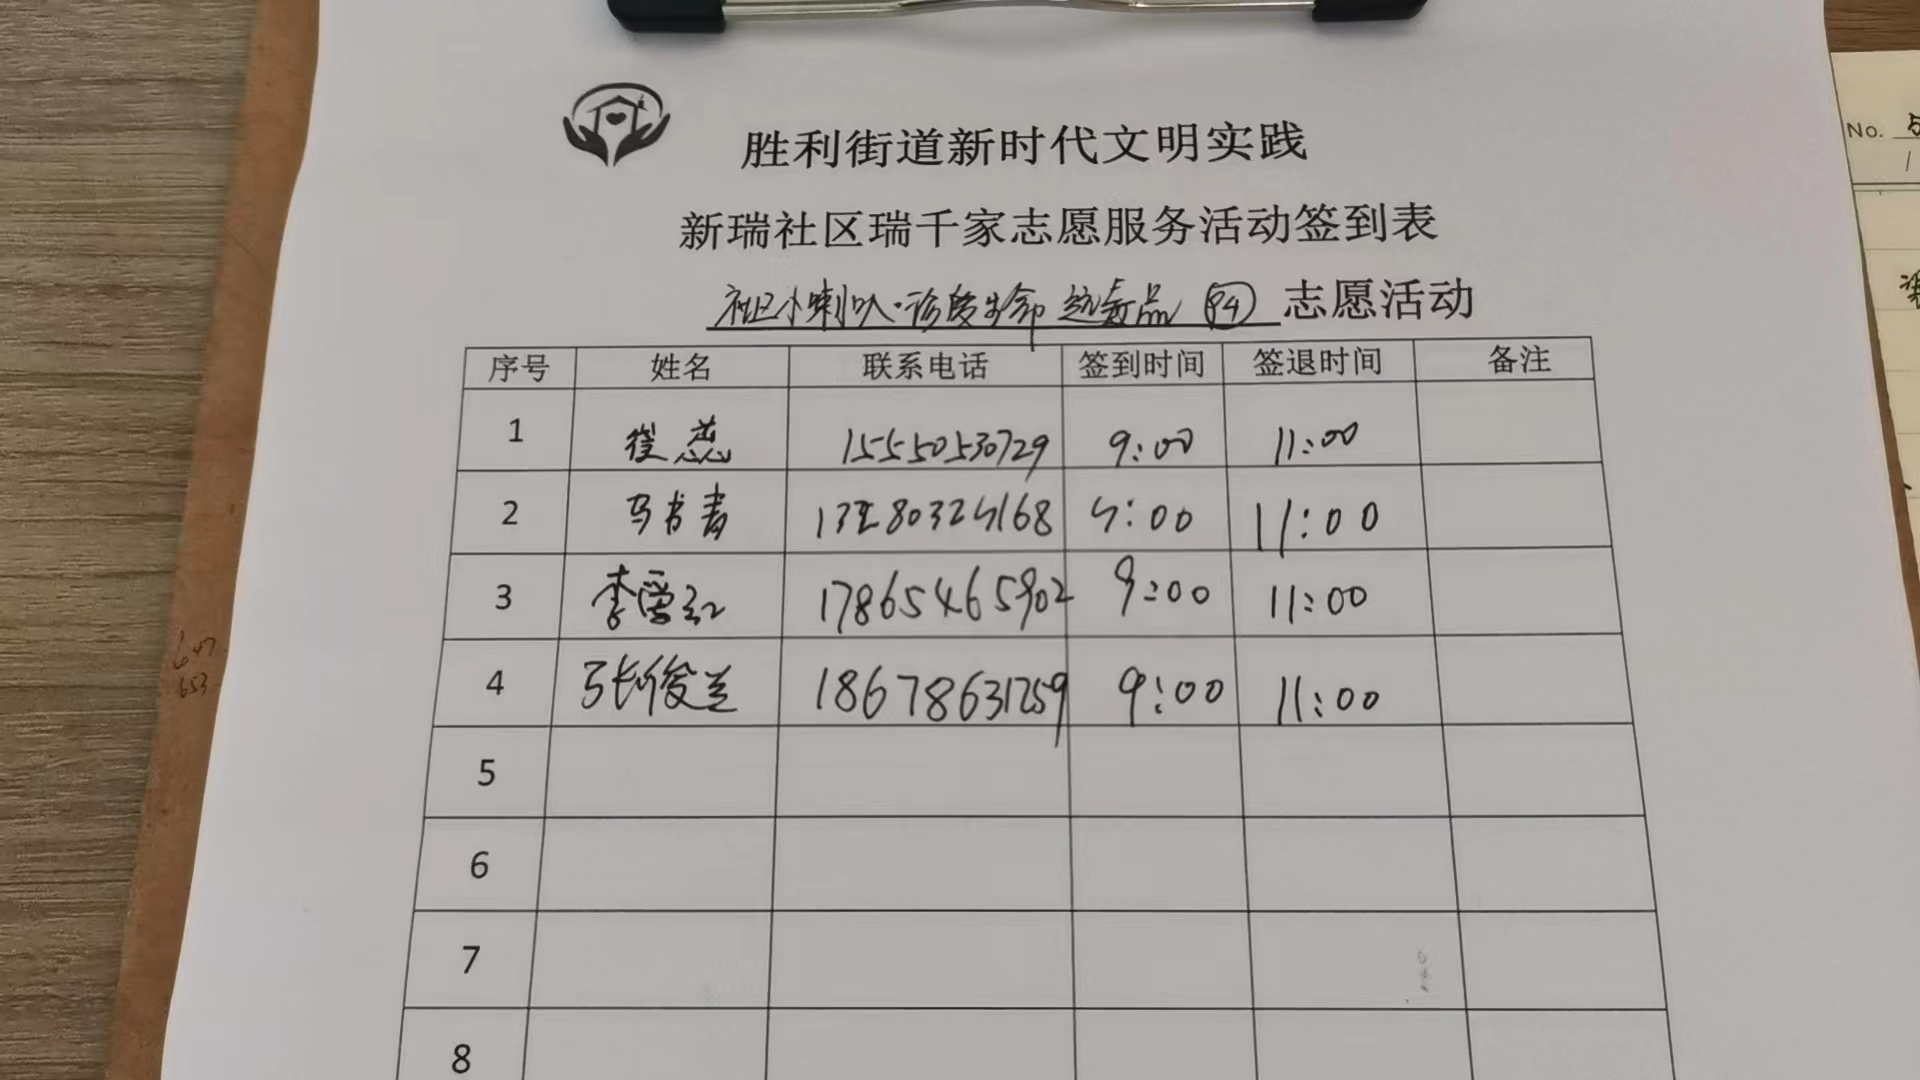 胜利街道新时代文明实践
新瑞社区瑞千家志愿服务活动签到表
社区小喇叭·珍爱生命 远毒品 志愿活动
序号 姓名 联系电话 签到时间 签退时间 备注
1 徐蕊 15550530729 9:00 11:00
2 马书青 :00 11:00
3 李雪红 17865465902 9:00 11:00
4 张俊兰 18678631259 9:00 11:00
5
6
7
8
No.
647
653